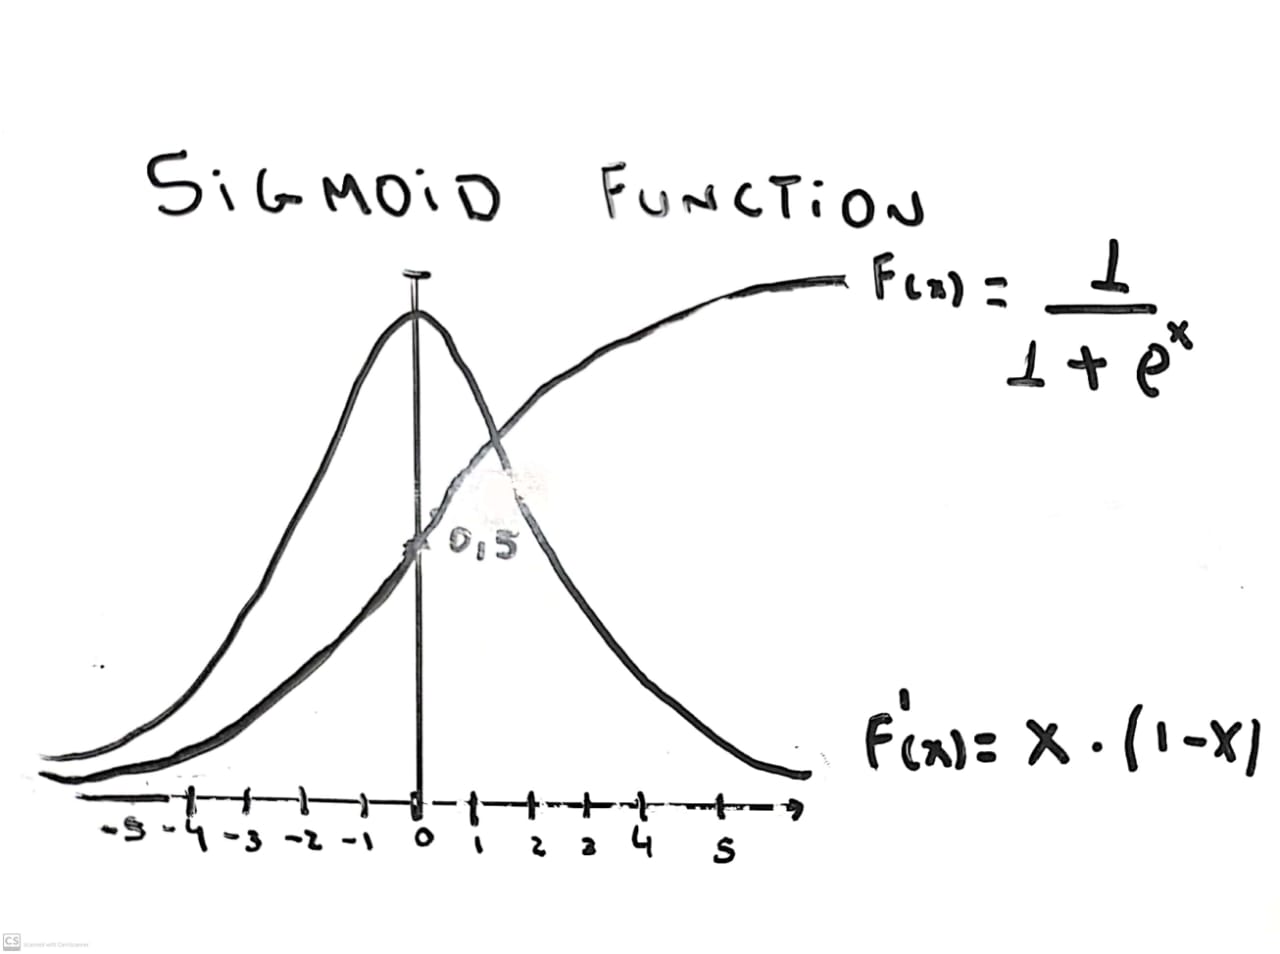 SiGMOiD FUNCTiON
F(x) = 1
1 + e^x
0,5
F'(x) = x . (1-x)
-5 -4 -3 -2 -1 0 1 2 3 4 5
CS Scanned with CamScanner